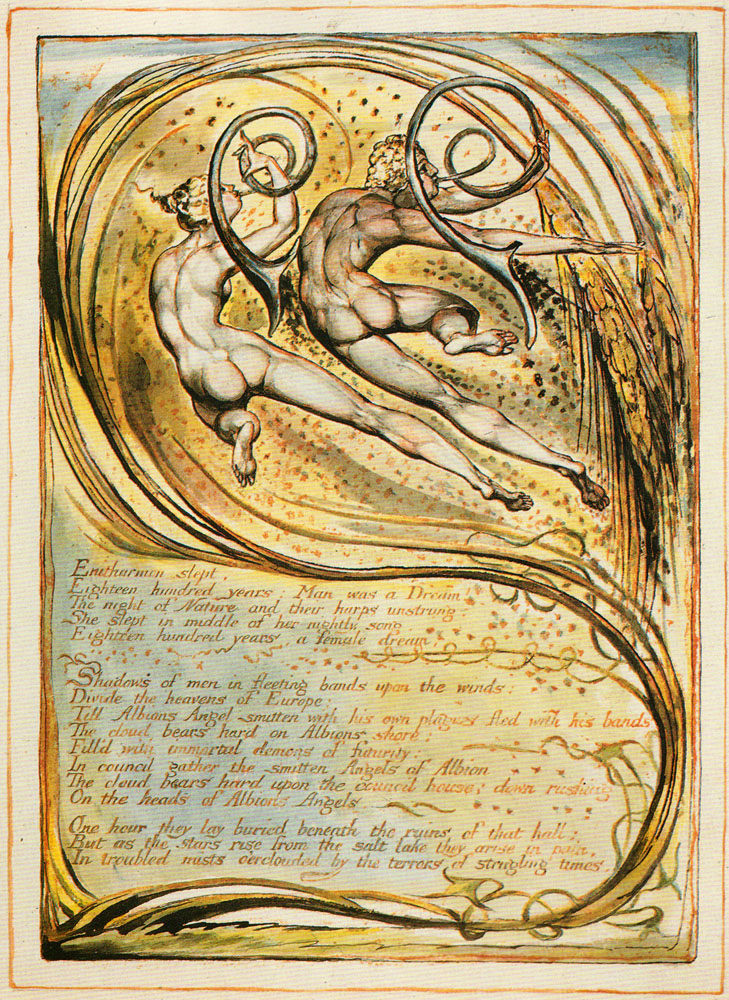 Enitharmon slept,
Eighteen hundred years: Man was a Dream!
The night of Nature and their harps unstrung:
She slept in middle of her nightly song,
Eighteen hundred years, a female dream!
Shadows of men in fleeting bands upon the winds:
Divide the heavens of Europe:
Till Albions Angel smitten with his own plagues fled with his bands
The cloud bears hard on Albions shore:
Fill'd with immortal demons of futurity:
In council gather the smitten Angels of Albion
The cloud bears hard upon the council house; down rushing
On the heads of Albions Angels.
One hour they lay buried beneath the ruins of that hall;
But as the stars rise from the salt lake they arise in pain,
In troubled mists o'erclouded by the terrors of strugling times.